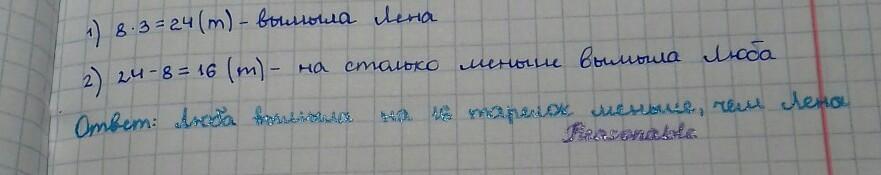 1) 8·3=24(т) – вымыла Лена
2) 24-8=16 (т) – на столько меньше вымыла Люба
Ответ: Люба вымыла на 16 тарелок меньше, чем Лена